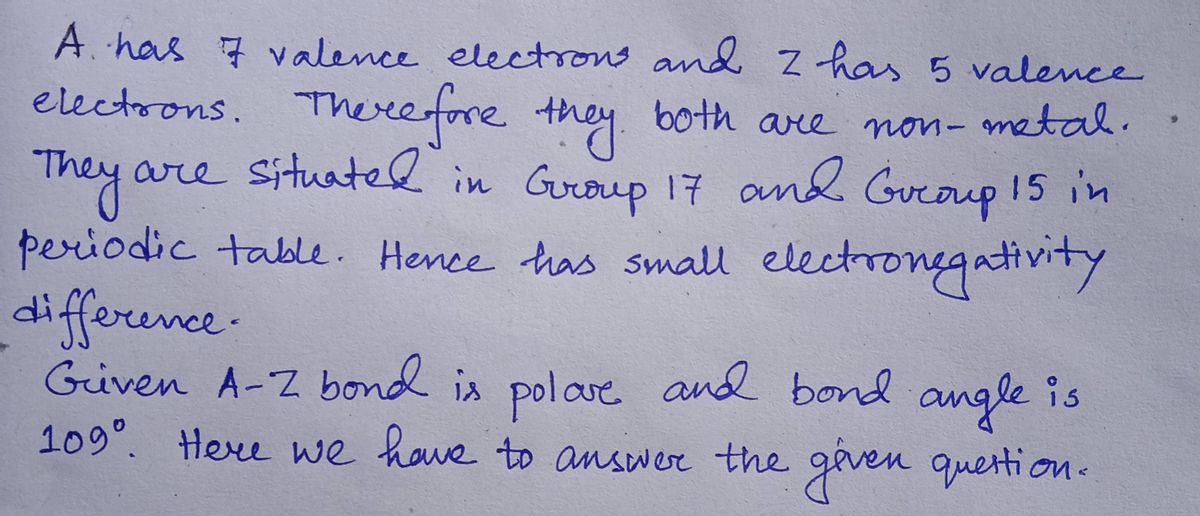 A. has 7 valence electrons and Z has 5 valence
electrons. Therefore they both are non-metal.
They are situated in Group 17 and Group 15 in
periodic table. Hence has small electronegativity
difference.
Given A-Z bond is polar and bond angle is
109°. Here we have to answer the given question.